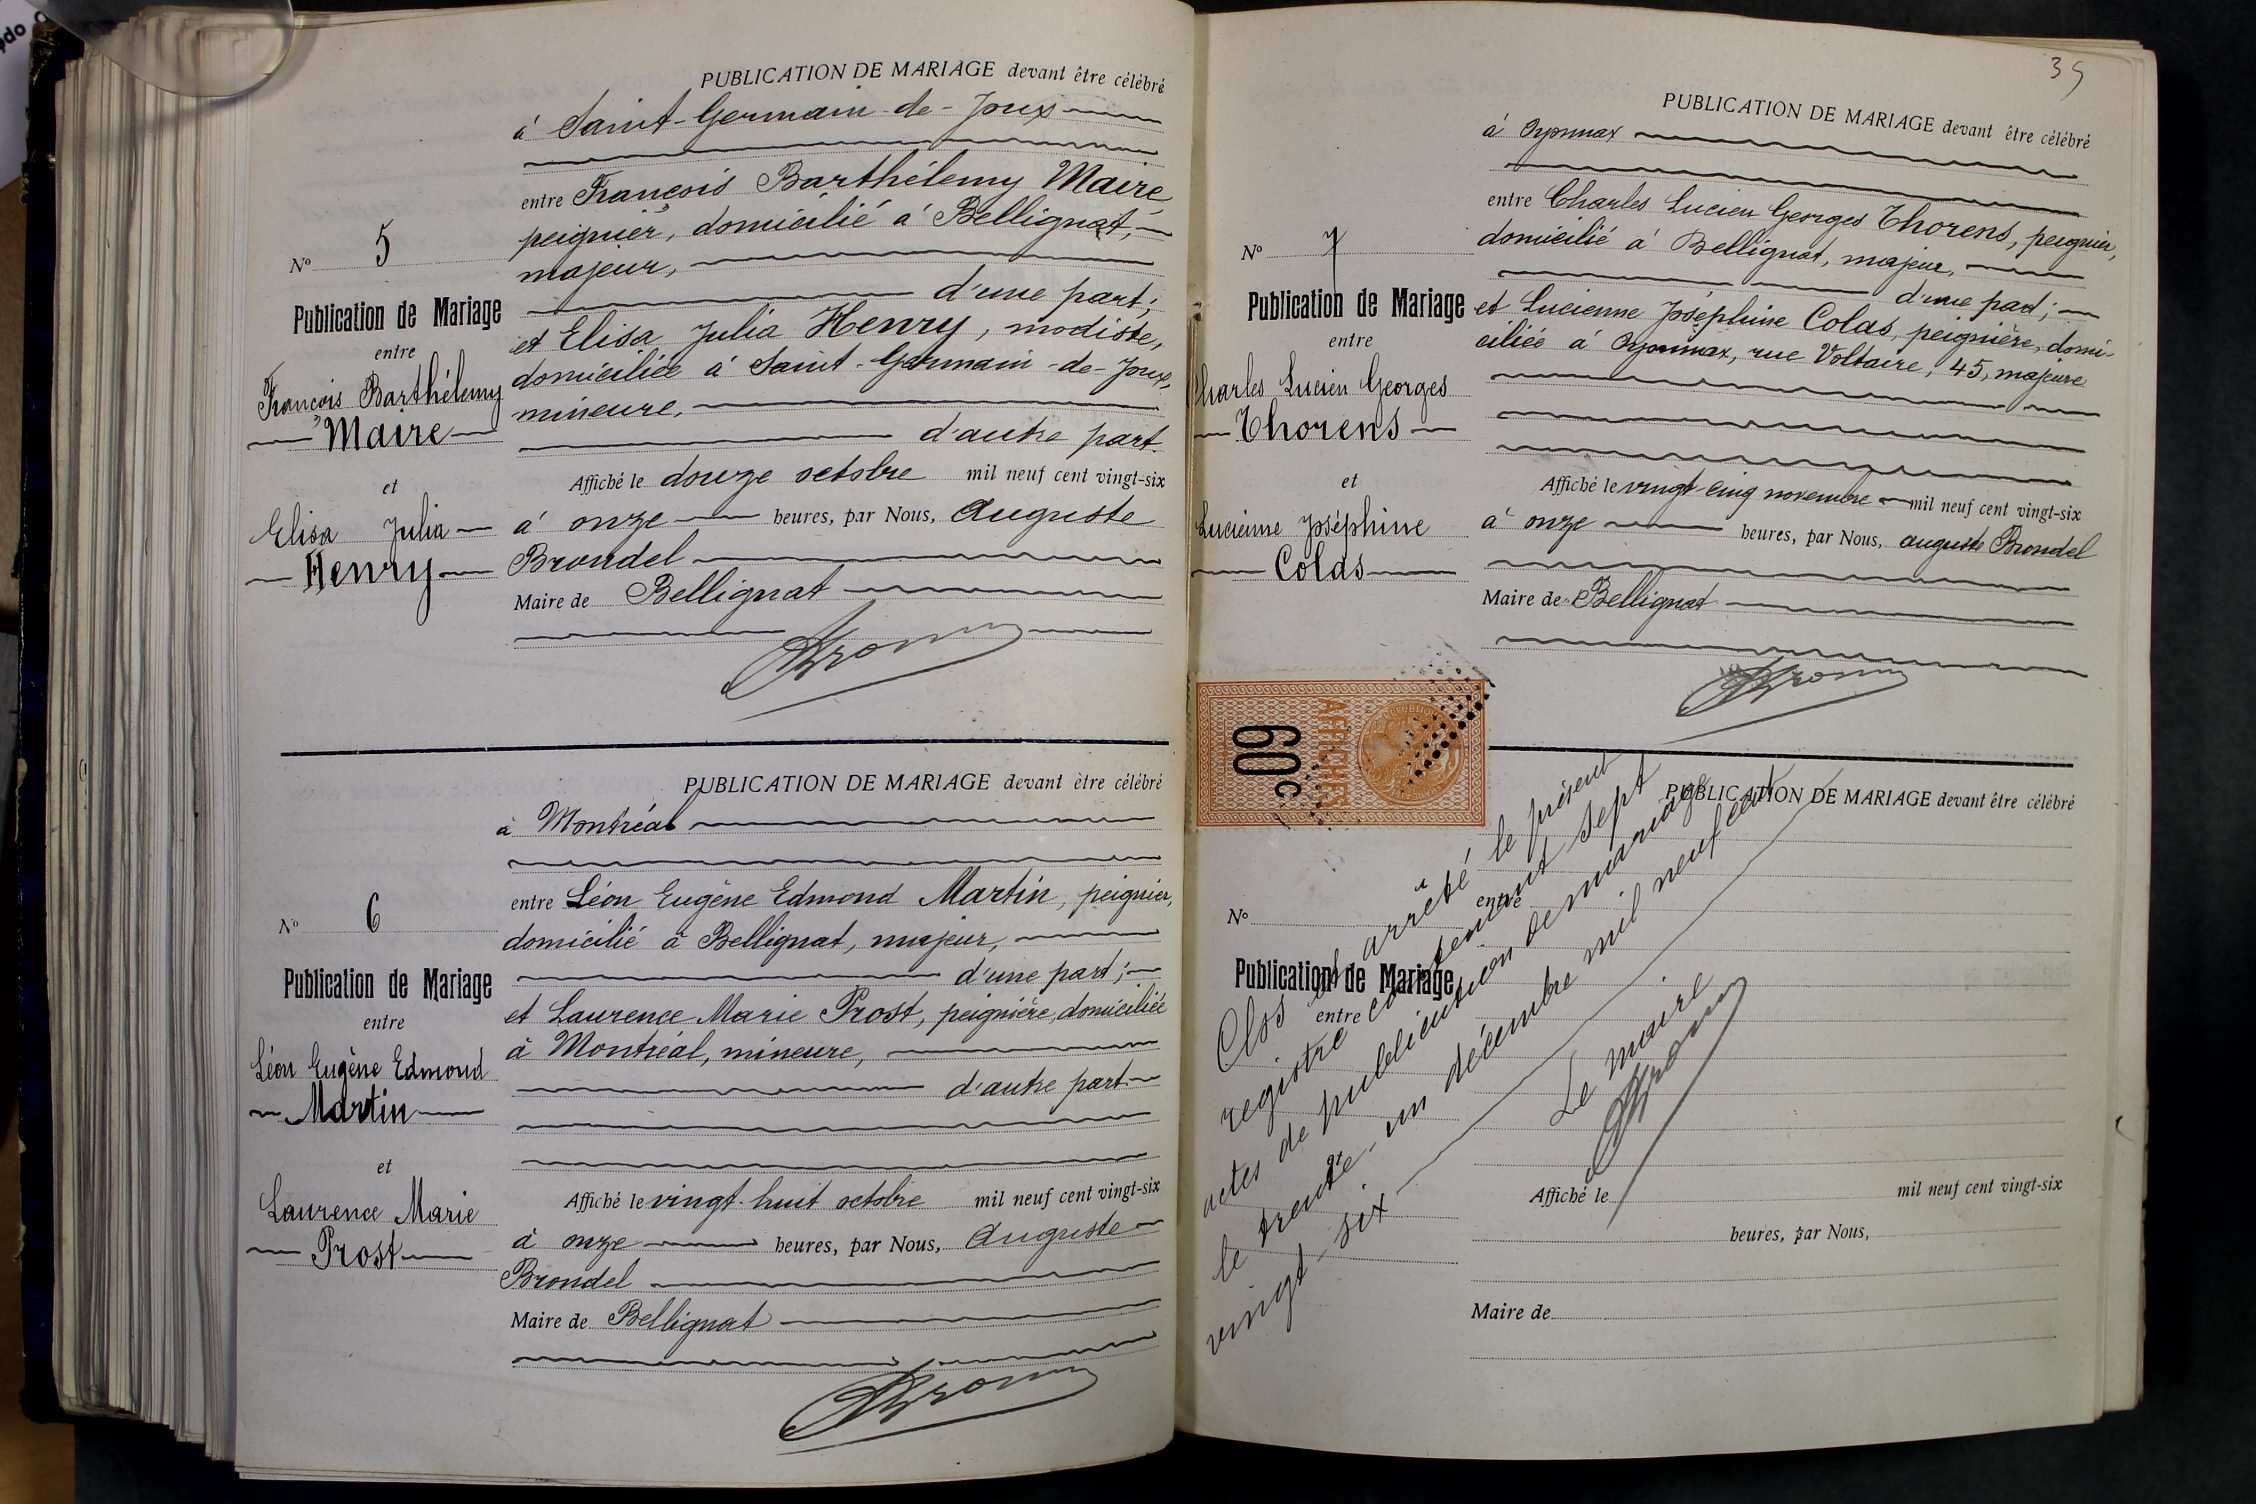 PUBLICATION DE MARIAGE devant être célébré
à Saint-Germain-de-Joux
entre François Barthélemy Maire
peignier, domicilié à Bellignat,
majeur,
d'une part;
et Elisa Julia Henry, modiste,
domiciliée à Saint-Germain-de-Joux,
mineure,
d'autre part.
Affiché le douze octobre mil neuf cent vingt-six
à onze heures, par Nous, Auguste
Brondel
Maire de Bellignat
N° 5
Publication de Mariage
entre
François Barthélemy
Maire
et
Elisa Julia
Henry
PUBLICATION DE MARIAGE devant être célébré
à Montréal
entre Léon Eugène Edmond Martin, peignier,
domicilié à Bellignat, majeur,
d'une part;
et Laurence Marie Prost, peignière, domiciliée
à Montréal, mineure,
d'autre part.
Affiché le vingt-huit octobre mil neuf cent vingt-six
à onze heures, par Nous, Auguste
Brondel
Maire de Bellignat
N° 6
Publication de Mariage
entre
Léon Eugène Edmond
Martin
et
Laurence Marie
Prost
35
PUBLICATION DE MARIAGE devant être célébré
à Oyonnax
entre Charles Lucien Georges Thorens, peignier,
domicilié à Bellignat, majeur,
d'une part;
et Lucienne Joséphine Colas, peignière, domi-
ciliée à Oyonnax, rue Voltaire, 45, majeure
Affiché le vingt-cinq novembre mil neuf cent vingt-six
à onze heures, par Nous, Auguste Brondel
Maire de Bellignat
N° 7
Publication de Mariage
entre
Charles Lucien Georges
Thorens
et
Lucienne Joséphine
Colas
AFFICHES
60c
PUBLICATION DE MARIAGE devant être célébré
entre
N°
Publication de Mariage
entre
Clos et arrêté le présent
registre contenant sept
actes de publication de mariage
le trente et un décembre mil neuf cent
vingt-six
Le maire
Affiché le mil neuf cent vingt-six
heures, par Nous,
Maire de